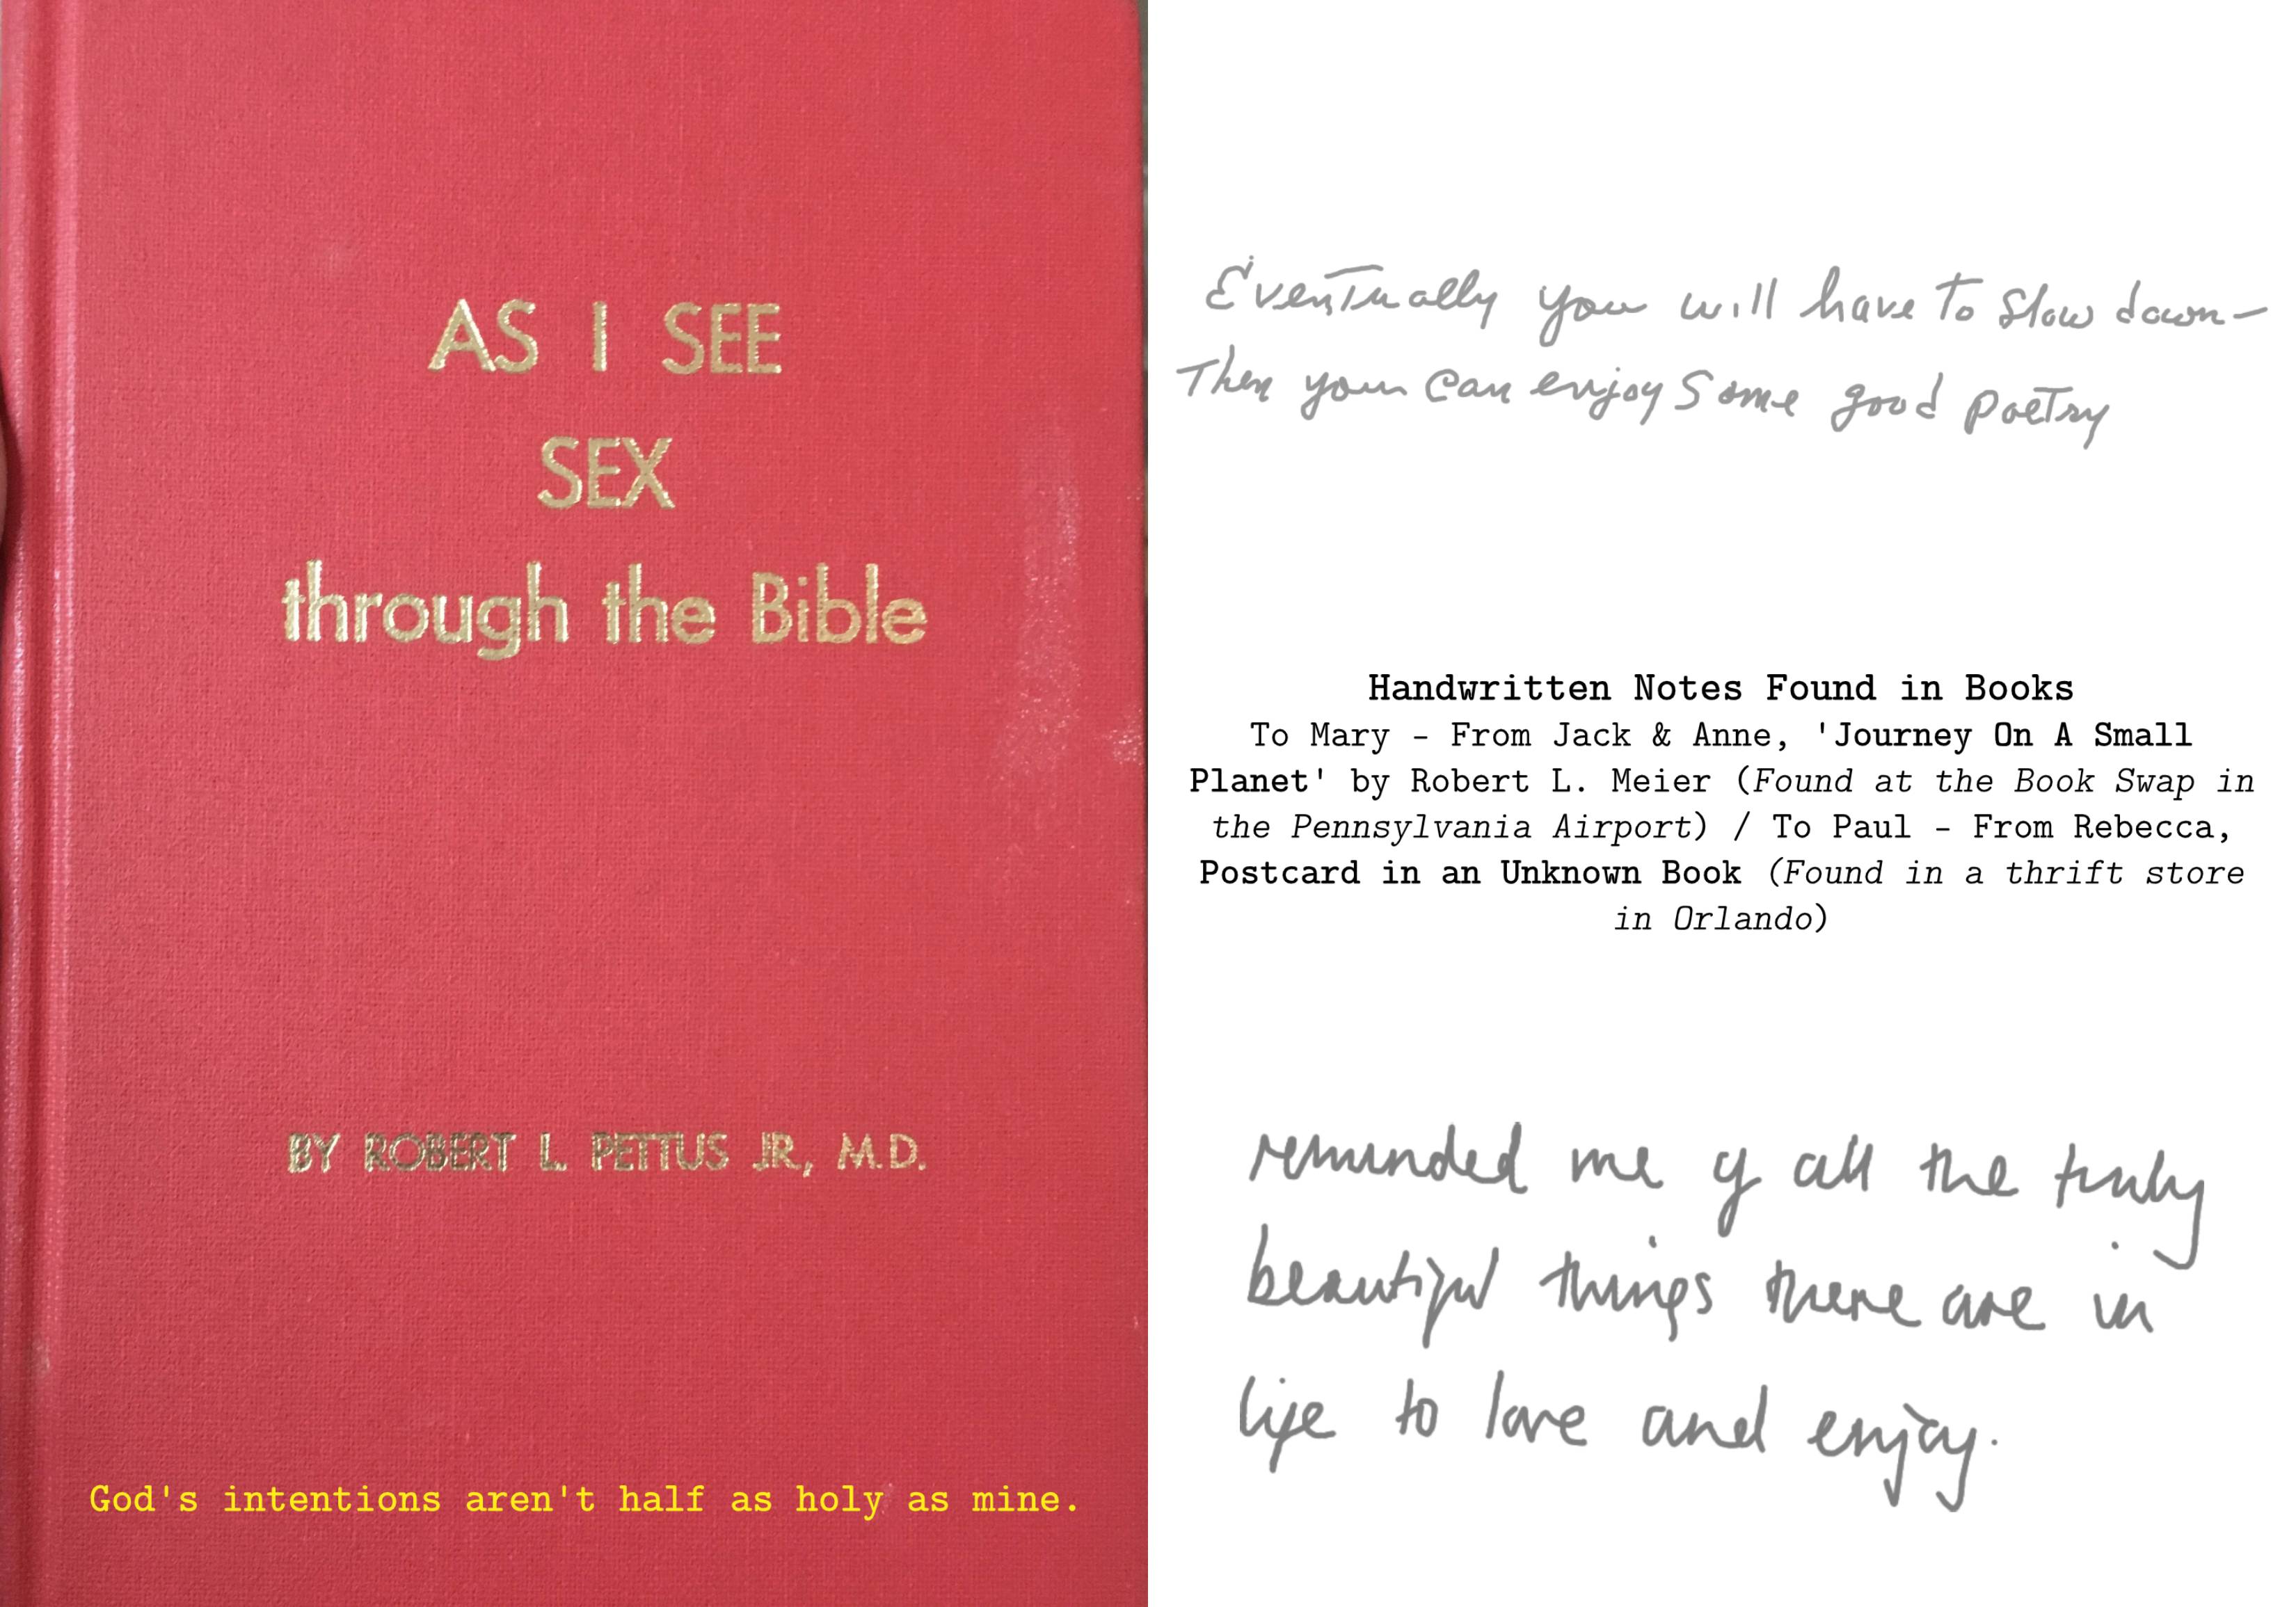 AS I SEE
SEX
through the Bible
BY ROBERT L. PETTUS JR., M.D.
God's intentions aren't half as holy as mine.
Eventually you will have to slow down—
Then you can enjoy some good poetry
Handwritten Notes Found in Books
To Mary - From Jack & Anne, 'Journey On A Small
Planet' by Robert L. Meier (Found at the Book Swap in
the Pennsylvania Airport) / To Paul - From Rebecca,
Postcard in an Unknown Book (Found in a thrift store
in Orlando)
reminded me of all the truly
beautiful things there are in
life to love and enjoy.